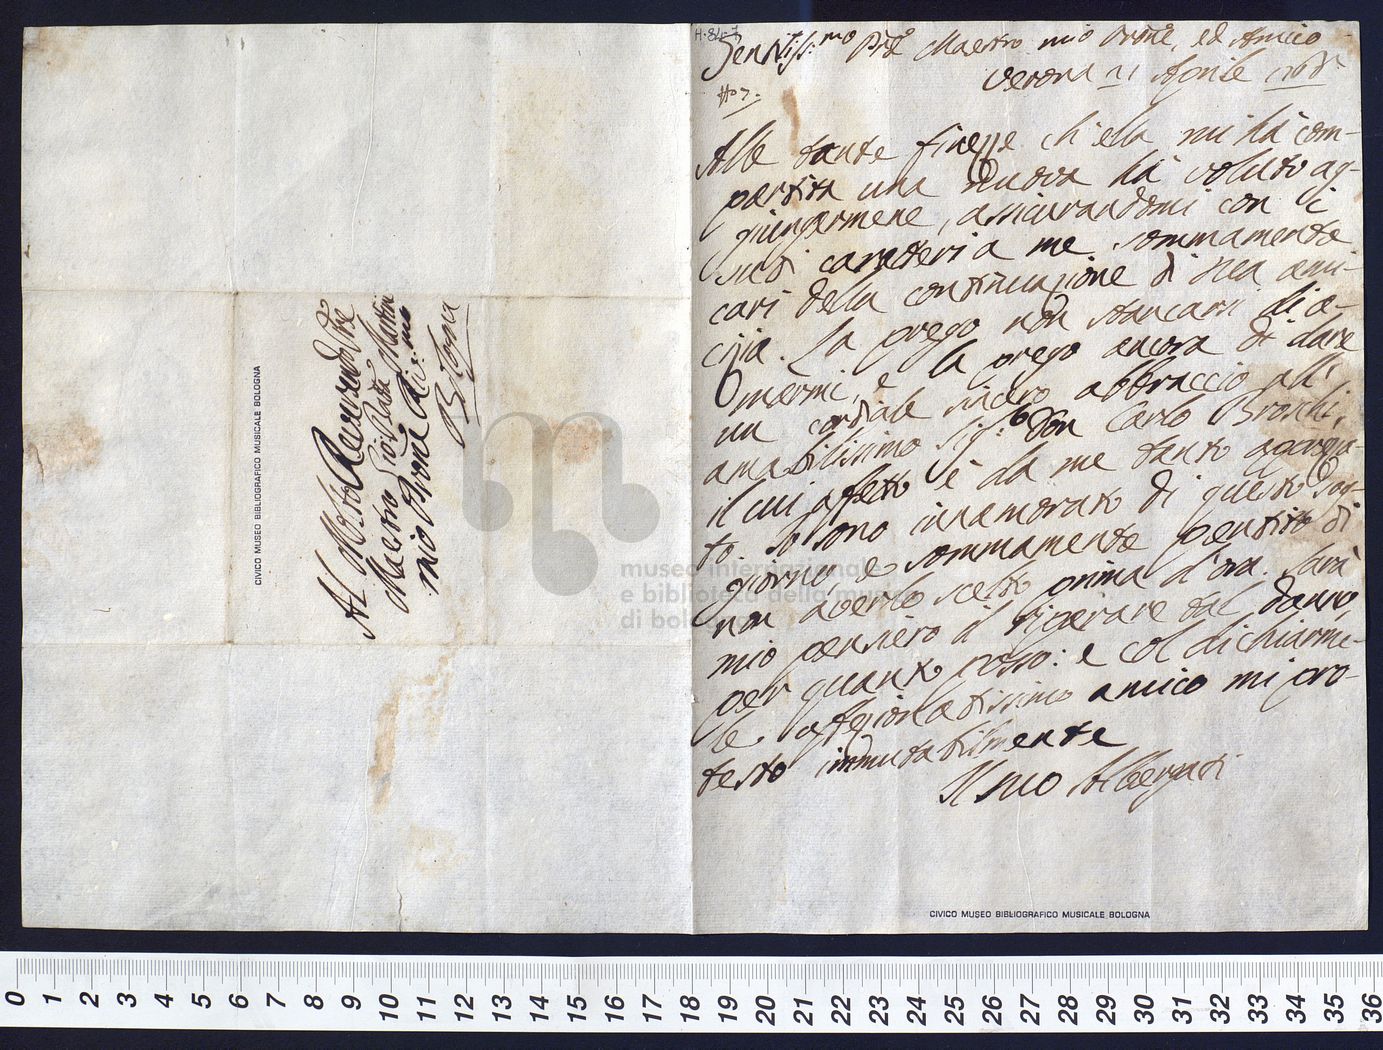 H.84.7
Gentiliss:mo Pre Maestro mio Prone, ed Amico
Verona 21 Aprile
Alle tante finezze ch'ella mi hà com-
partita una nuova hà voluto ag-
giungermene, assicurandomi con i
suoi caratteri a me sommamente
cari della continuazione di sua ami-
cizia. La prego non stancarsi di a-
marmi, e la prego ancora di dare
un cordiale sincero abbraccio all'
amabilissimo Sig:r Don Carlo Broschi,
il cui affetto è da me tanto aggradi-
to. Io sono innamorato di questo sog-
giorno, e sommamente pentito di
non averlo scelto prima d'ora. Sarà
mio pensiero il riparare tal danno,
per quanto posso: e col dichiarmi-
le affezionatissimo amico mi pro-
testo immutabilmente
Il suo Albergati
Al Molto Reverendo Pre
Maestro Giov. Batta Martini
mio Prone Col:mo
Bologna
CIVICO MUSEO BIBLIOGRAFICO MUSICALE BOLOGNA
CIVICO MUSEO BIBLIOGRAFICO MUSICALE BOLOGNA
museo internazionale
e biblioteca della musica
di bologna
0 1 2 3 4 5 6 7 8 9 10 11 12 13 14 15 16 17 18 19 20 21 22 23 24 25 26 27 28 29 30 31 32 33 34 35 36